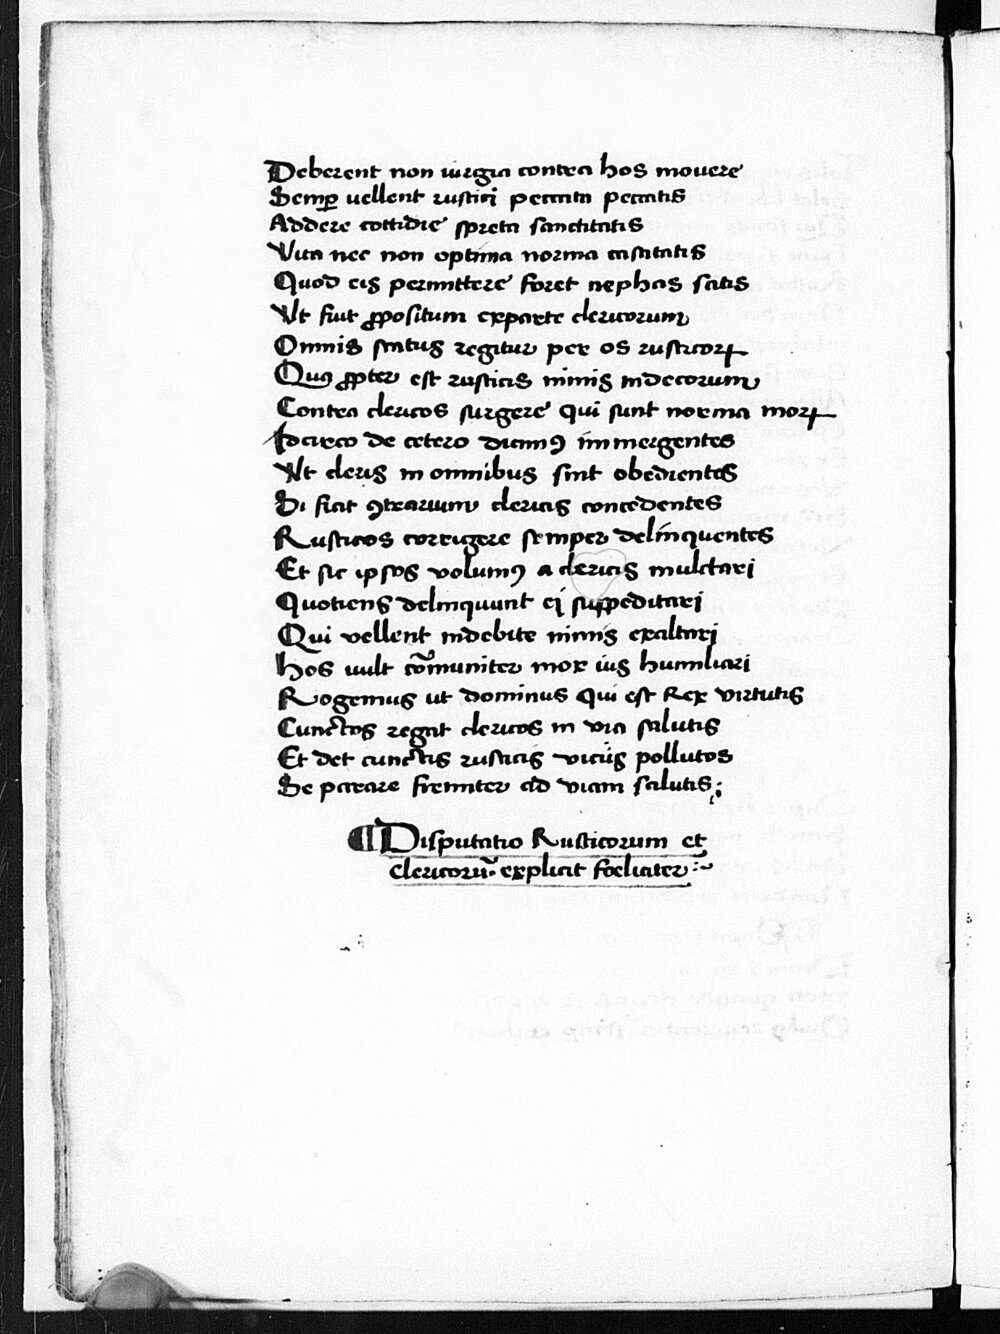 Deberent non iurgia contra hos movere
Semꝑ vellent rustici peccata peccatis
Addere cottidie spreta sanctitatis
Vita nec non optima norma castitatis
Quod eis permittere foret nephas satis
Vt fiat ꝓpositum exparte clericorum
Omnis status regitur per os rusticoꝝ
Quꝰ ꝓpter est rusticis nimis indecorum
Contra clericos surgere qui sunt norma moꝝ
Idcirco de cetero dicimꝰ immergentes
Vt cleris in omnibus sint obedientes
Si fiat ꝯtrarium clericis concedentes
Rusticos corrigere semper delinquentes
Et sic ipsos volumꝰ a clericis mulctari
Quotiens delinquunt ej suppeditari
Qui vellent indebite nimis exaltari
hos vult cōmuniter mox ius humiliari
Rogemus ut dominus qui est Rex virtutis
Cunctos regat clericos in via salutis
Et det cunctis rusticis viciis pollutos
Se parare firmiter ad viam salutis;
¶ Disputatio Rusticorum et
clericorū explicit foeliciter